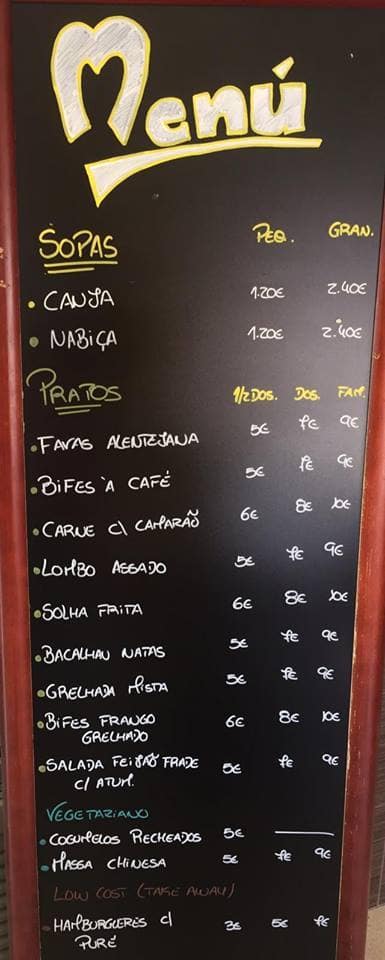 Menú
SOPAS PEQ. GRAN.
• CANJA 1.20€ 2.40€
• NABIÇA 1.20€ 2.40€
PRATOS 1/2 DOS. DOS. FAM.
• FAVAS ALENTEJANA 5€ 7€ 9€
• BIFES À CAFÉ 5€ 7€ 9€
• CARNE C/ CAMARÃO 6€ 8€ 10€
• LOMBO ASSADO 5€ 7€ 9€
• SOLHA FRITA 6€ 8€ 10€
• BACALHAU NATAS 5€ 7€ 9€
• GRELHADA MISTA 5€ 7€ 9€
• BIFES FRANGO 6€ 8€ 10€
GRELHADO
• SALADA FEIJÃO FRADE 5€ 7€ 9€
C/ ATUM.
VEGETARIANO
• COGUMELOS RECHEADOS 5€
• MASSA CHINESA 5€ 7€ 9€
LOW COST (TAKE AWAY)
• HAMBURGUERES C/ 3€ 5€ 7€
PURÉ